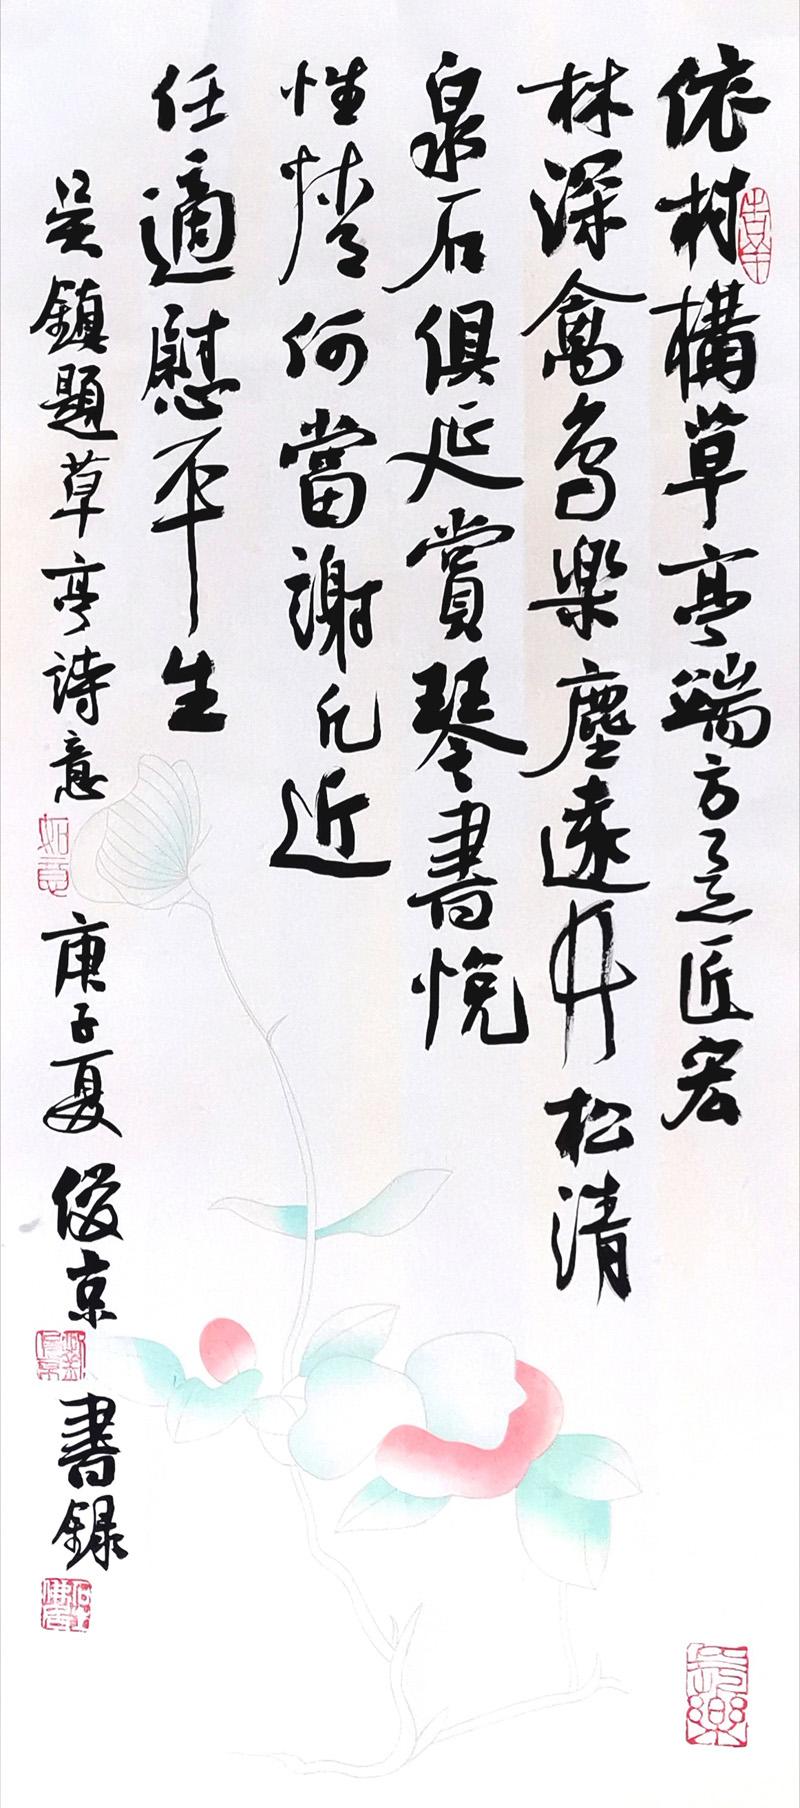 依村構草亭端方意匠宏
林深禽鳥樂塵遠竹松清
泉石俱延賞琴書悅
性情何當謝凡近
任適慰平生
吳鎮題草亭詩意 庚子夏 俊京 書錄
如意
長樂